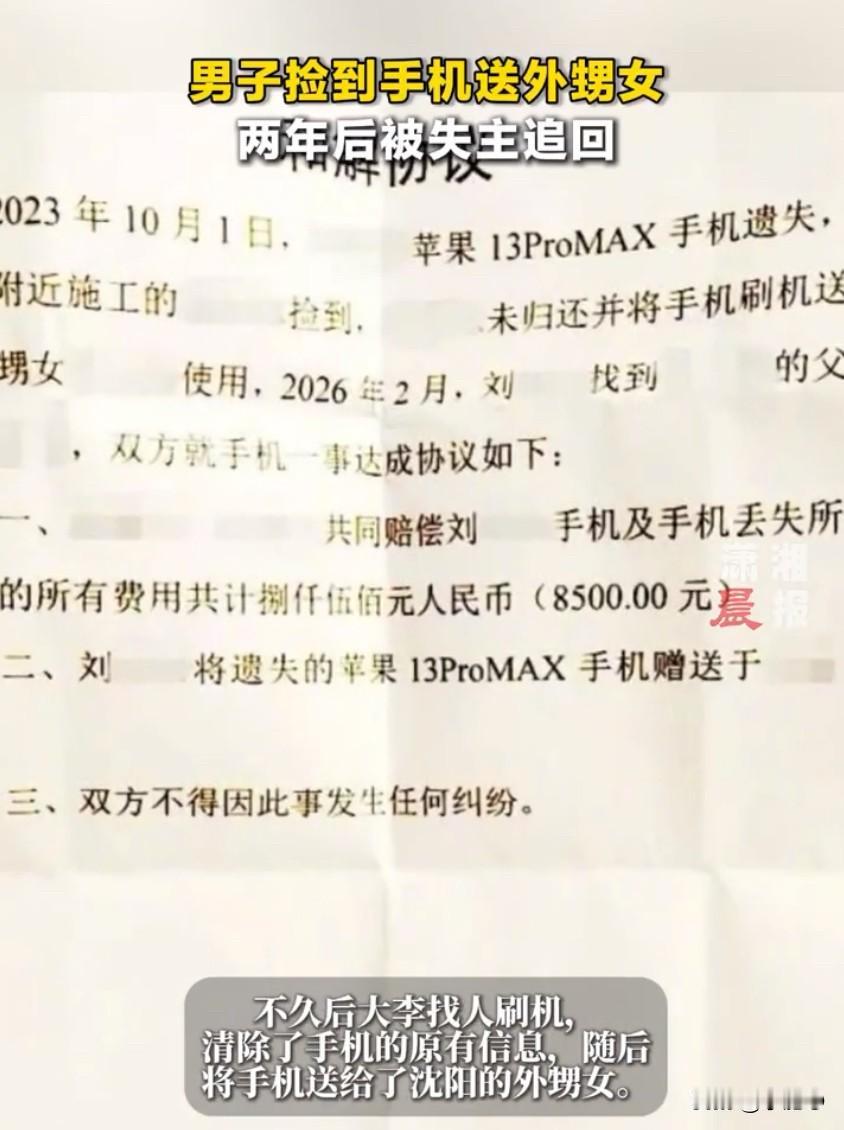 男子捡到手机送外甥女
两年后被失主追回
和解协议
2023 年 10 月 1 日，
苹果 13ProMAX 手机遗失，
附近施工的
捡到，
未归还并将手机刷机送
甥女
使用，2026 年 2 月，刘
找到
的父
，双方就手机一事达成协议如下：
一、
共同赔偿刘
手机及手机丢失所
的所有费用共计捌仟伍佰元人民币（8500.00 元）
潇湘晨报
二、刘
将遗失的苹果 13ProMAX 手机赠送于
三、双方不得因此事发生任何纠纷。
不久后大李找人刷机，
清除了手机的原有信息，随后
将手机送给了沈阳的外甥女。